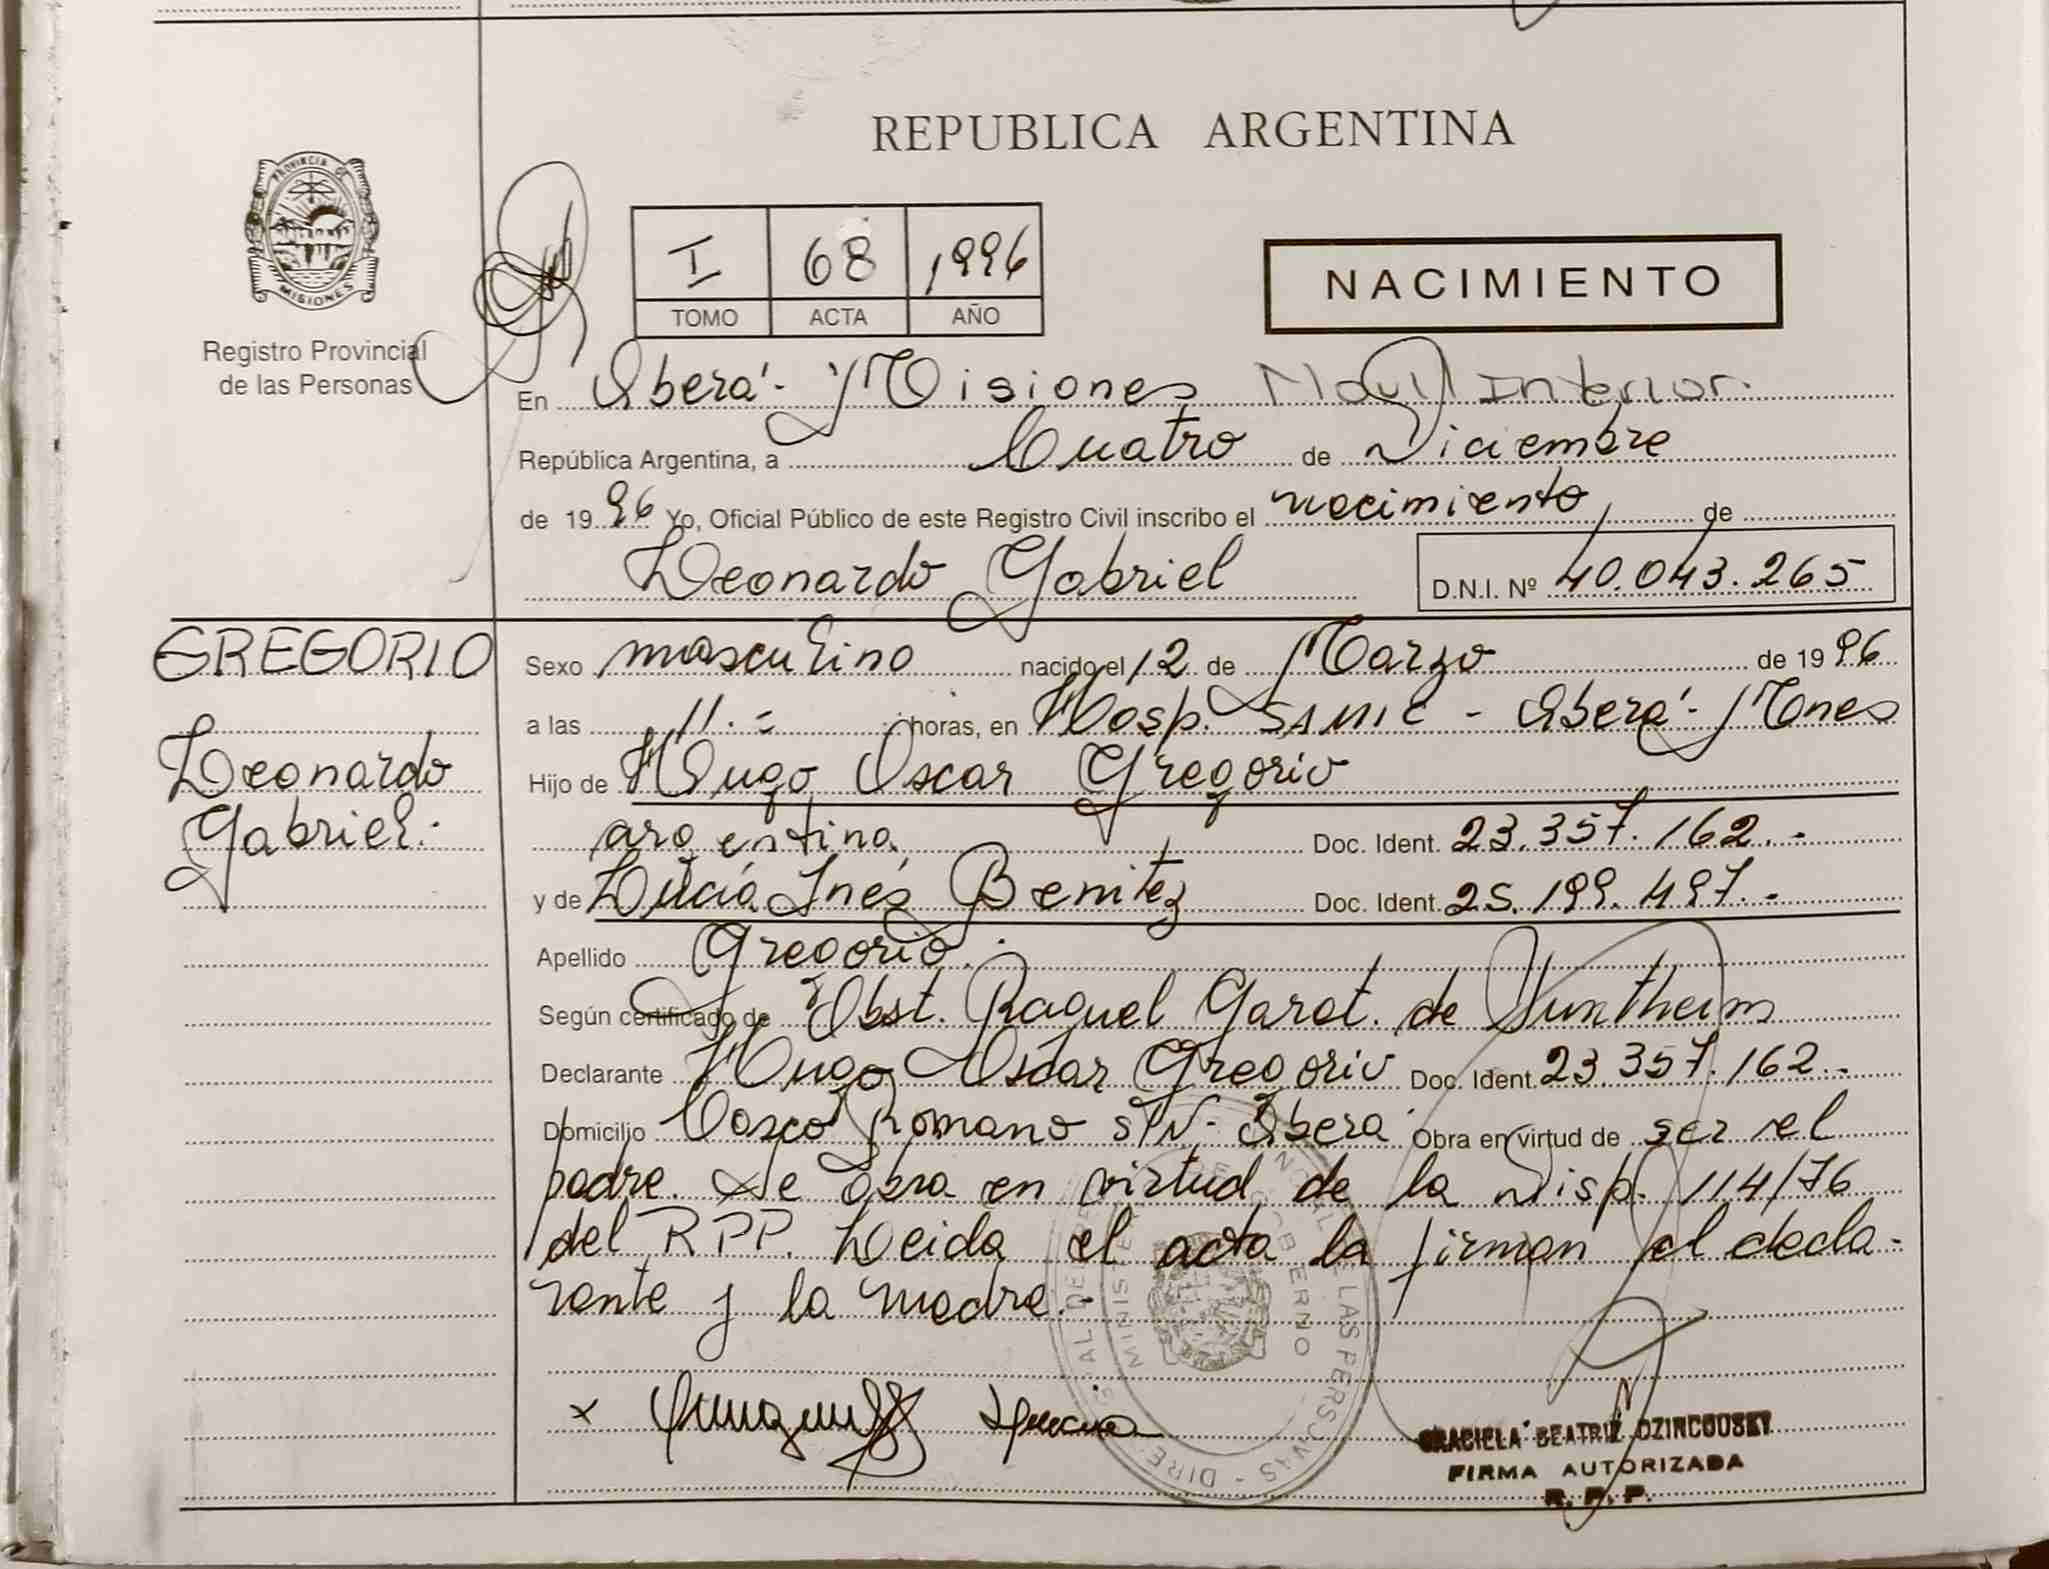 REPUBLICA ARGENTINA
PROVINCIA DE
MISIONES
Registro Provincial
de las Personas
I 68 1996
TOMO ACTA AÑO
NACIMIENTO
En Oberá - Misiones Movil Interior.
República Argentina, a Cuatro de Diciembre
de 1996 Yo, Oficial Público de este Registro Civil inscribo el nacimiento, de
Leonardo Gabriel D.N.I. Nº 40.043.265
GREGORIO
Leonardo
Gabriel.
Sexo masculino nacido el 12 de Marzo de 1996
a las 11.= horas, en Hosp. SAMIC - Oberá - Mnes
Hijo de Hugo Oscar Gregorio
argentino. Doc. Ident. 23.357.162.-
y de Lucía Inés Benitez Doc. Ident. 25.199.497.-
Apellido Gregorio.
Según certificado de Obst. Raquel Garat. de
Declarante Hugo Oscar Gregorio Doc. Ident. 23.357.162.-
Domicilio Vasco Romano S/N - Oberá Obra en virtud de ser el
padre. Se obra en virtud de la Disp. 114/76
del RPP. Leida el acta la firman el decla-
rante y la madre.
MINISTERIO DE GOBIERNO
DE LAS PERSONAS - DIRE
x
GRACIELA BEATRIZ OZINCOUSKY
FIRMA AUTORIZADA
R. P. P.